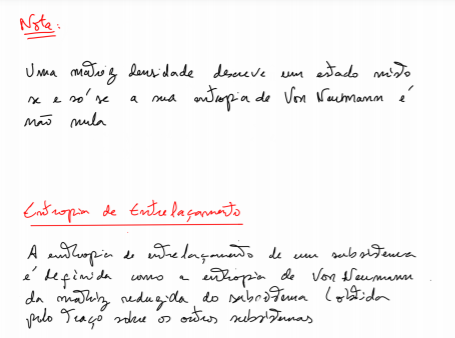 Nota:
Uma matriz densidade descreve um estado misto
se e só se a sua entropia de Von Neumann é
não nula
Entropia de Entrelaçamento
A entropia de entrelaçamento de um subsistema
é definida como a entropia de Von Neumann
da matriz reduzida do subsistema (obtida
pelo traço sobre os outros subsistemas